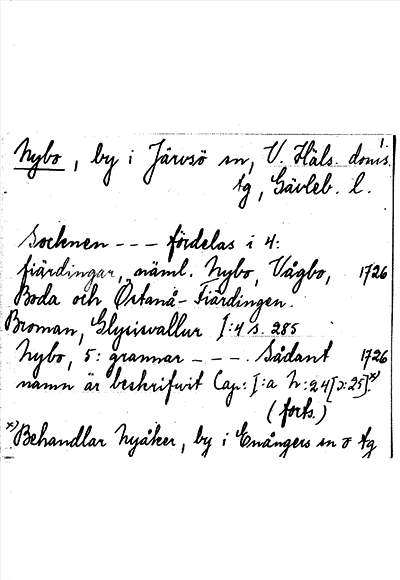 1.
Nybo, by i Järvsö sn, V. Häls. doms.
tg, Gävleb. l.
Socknen - - - fördelas i 4:
fiärdingar, näml. Nybo, Vågbo, 1726
Boda och Östanå-Fiärdingen.
Broman, Glysisvallur I:4 s. 285
Nybo, 5: grannar - - - . Sådant 1726
namn är beskrifwit Cap: I:a N:24[ɔ:25].*)
(forts.)
*) Behandlar Nyåker, by i Enångers sn o tg